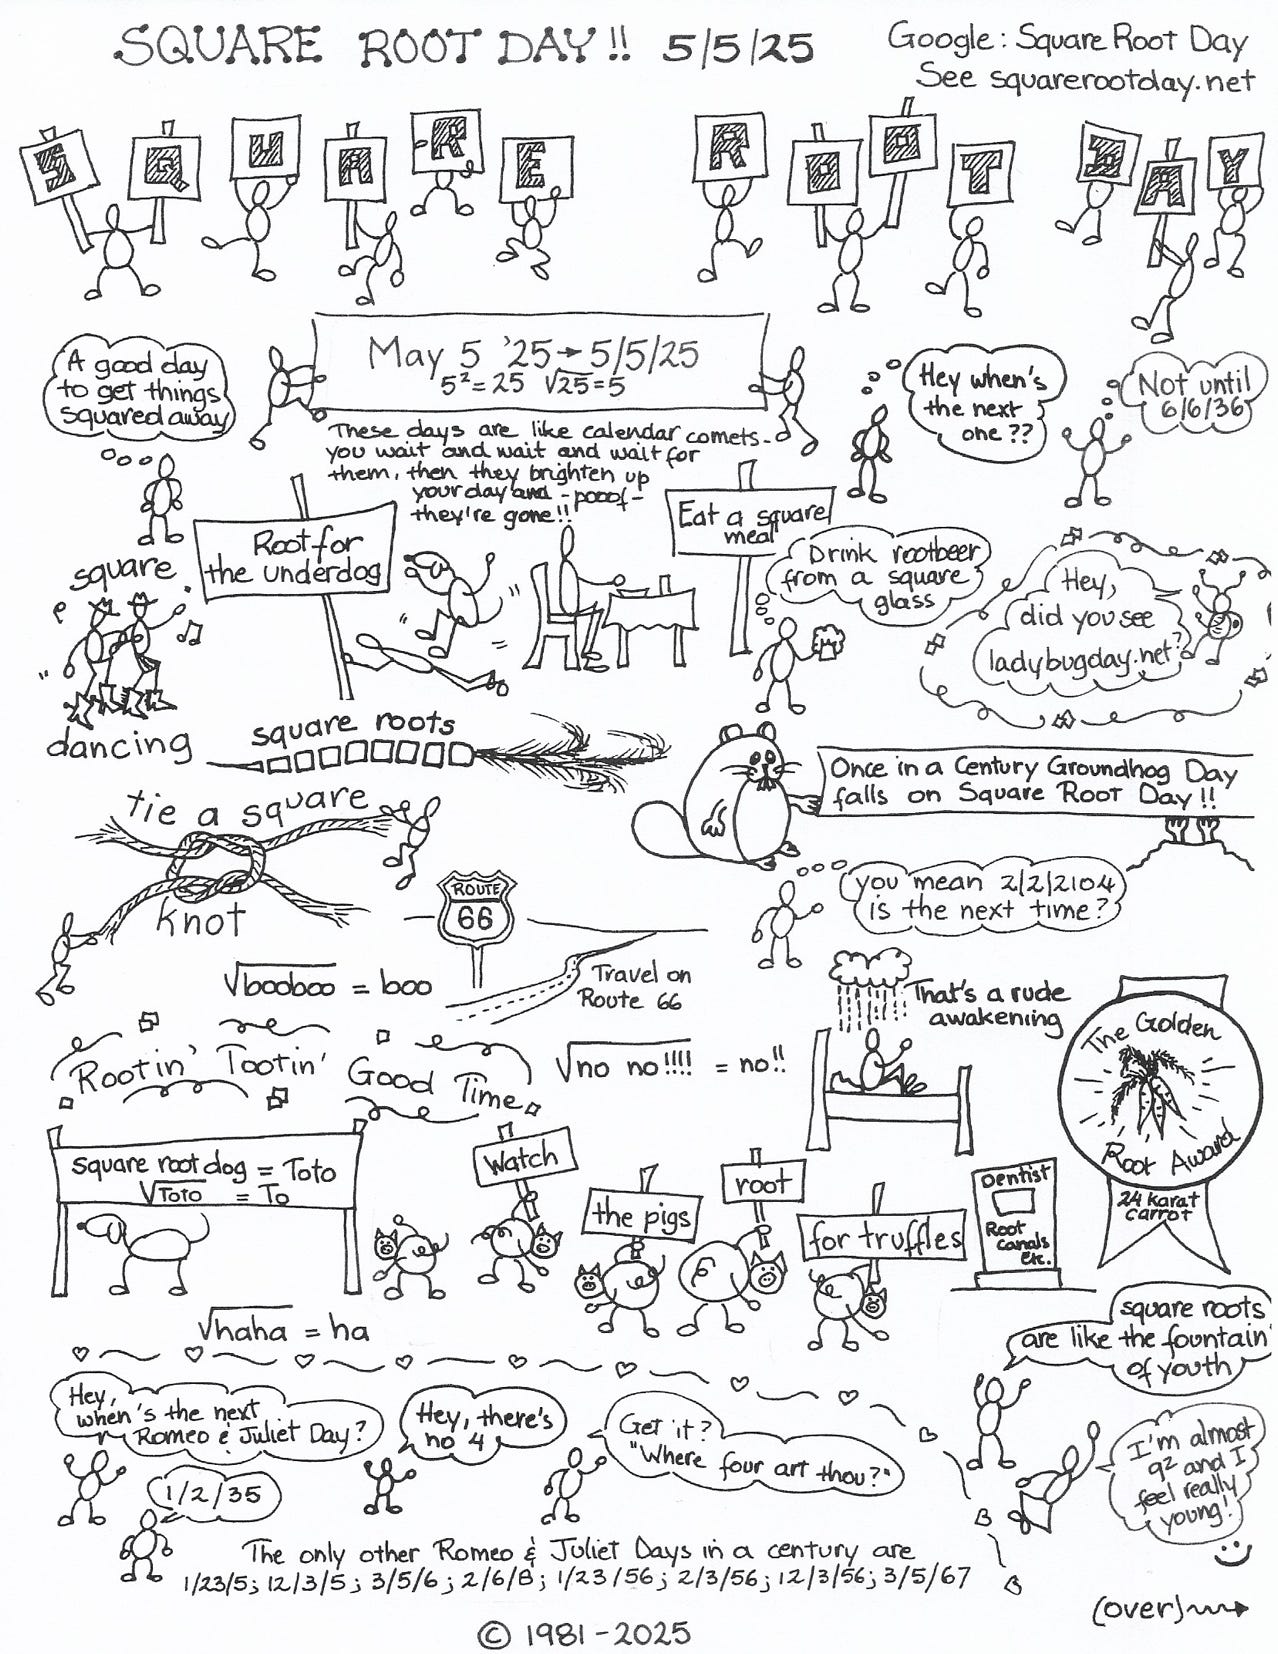 SQUARE ROOT DAY!! 5/5/25
Google: Square Root Day
See squarerootday.net
SQUARE ROOT DAY
A good day
to get things
squared away
May 5 '25→5/5/25
5²=25 √25=5
These days are like calendar comets-
you wait and wait and wait for
them, then they brighten up
your day and -pooof-
they're gone!!
Hey when's
the next
one??
Not until
6/6/36
Root for
the underdog
Eat a square
meal
Drink rootbeer
from a square
glass
Hey,
did you see
ladybugday.net?
square
dancing
square roots
Once in a Century Groundhog Day
falls on Square Root Day!!
tie a square
knot
you mean 2/2/2104
is the next time?
ROUTE
66
Travel on
Route 66
√booboo = boo
That's a rude
awakening
The Golden
Root Award
24 karat
carrot
Rootin' Tootin' Good Time
√no no!!!! = no!!
square root dog = Toto
√Toto = To
Watch
the pigs
root
for truffles
Dentist
Root
Canals
Etc.
√haha = ha
square roots
are like the fountain
of youth
Hey,
when's the next
Romeo & Juliet Day?
1/2/35
Hey, there's
no 4
Get it?
"Where four art thou?"
I'm almost
9² and I
feel really
young!
The only other Romeo & Juliet Days in a century are
1/23/5; 12/3/5; 3/5/6; 2/6/8; 1/23/56; 2/3/56; 12/3/56; 3/5/67
(over)→
© 1981-2025